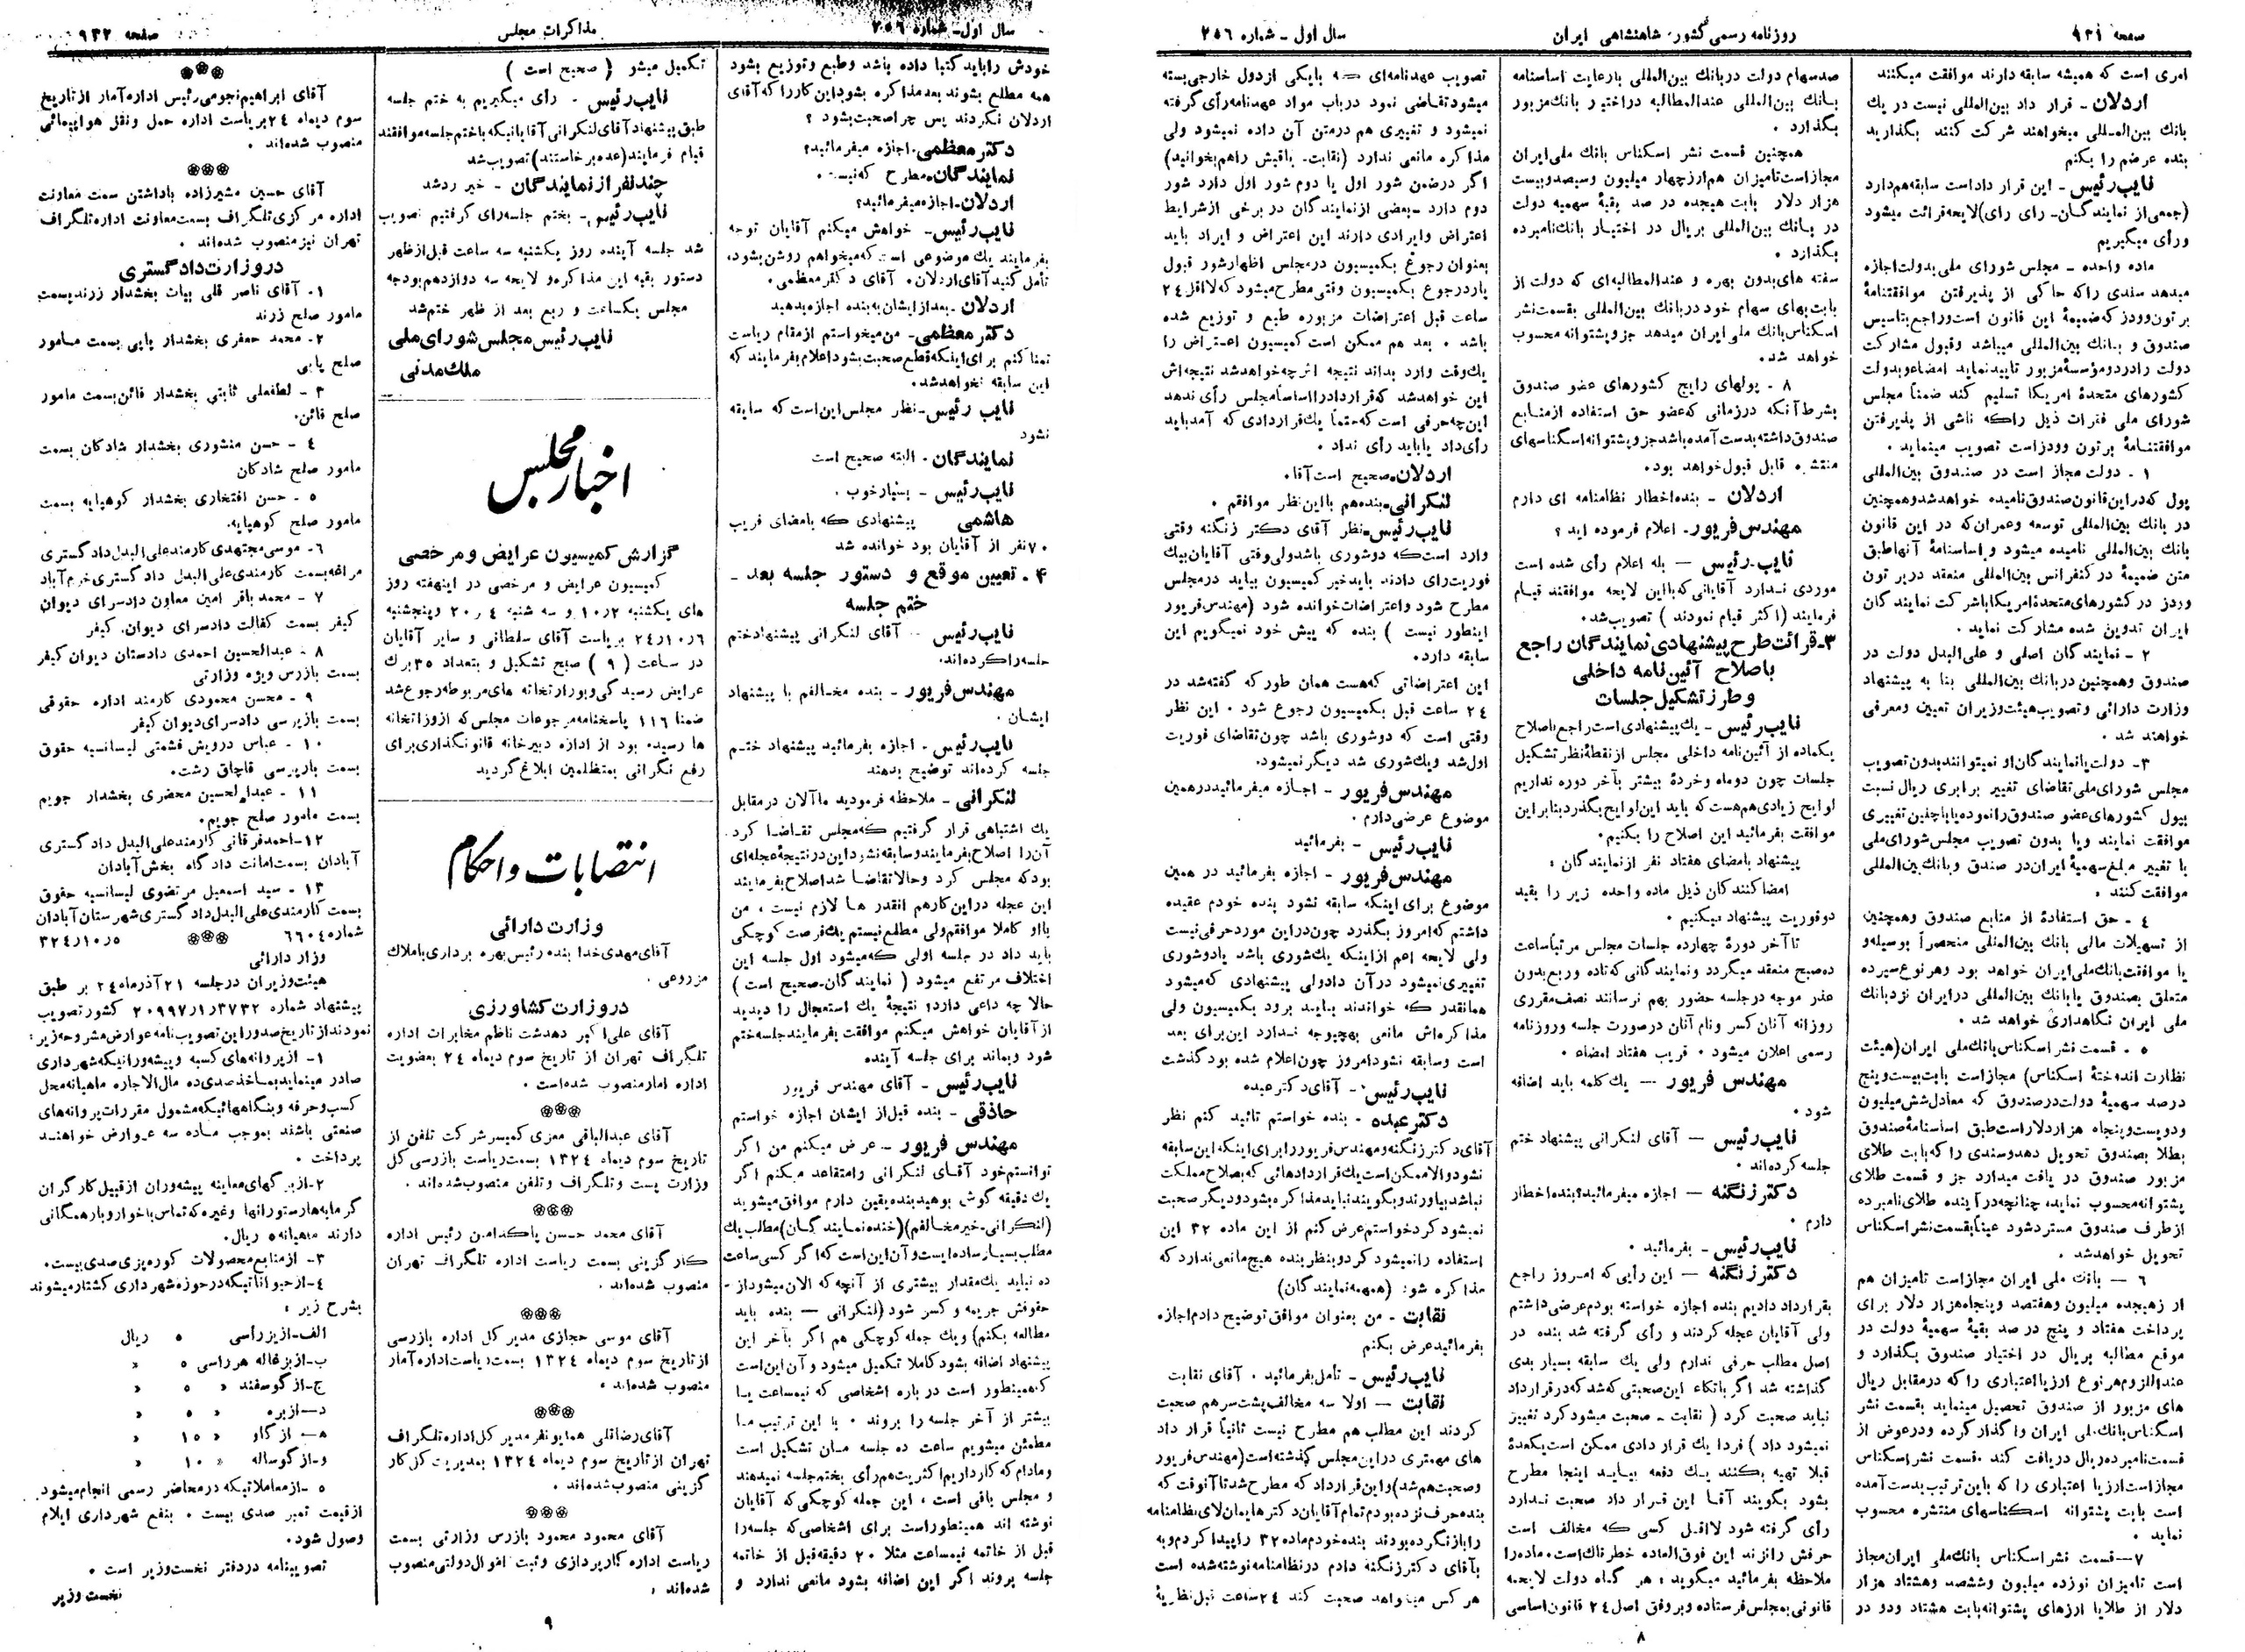 صفحه ۹۳۱
روزنامه رسمی کشور شاهنشاهی ایران
سال اول - شماره ۲۵۶
امری است که همیشه سابقه دارند موافقت میکنند
اردلان - قرار داد بین‌المللی نیست در یك
بانك بین‌المللی میخواهند شرکت کنند بگذارید
بنده عرضم را بکنم
نایب رئیس - این قرار داداست سابقه هم دارد
(جمعی از نمایندگان - رای رای) لایحه قرائت میشود
ورأی میگیریم
ماده واحده - مجلس شورای ملی بدولت اجازه
میدهد سندی را که حاکی از پذیرفتن موافقتنامهٔ
برتون وودز که ضمیمهٔ این قانون است وراجع بتأسیس
صندوق و بانك بین‌المللی میباشد وقبول مشارکت
دولت را در دو مؤسسهٔ مزبور تأیید نماید امضاء و بدولت
کشورهای متحدهٔ امریکا تسلیم کند ضمناً مجلس
شورای ملی فقرات ذیل را که ناشی از پذیرفتن
موافقتنامهٔ برتون وودز است تصویب مینماید .
۱ - دولت مجاز است در صندوق بین‌المللی
پول که در این قانون صندوق نامیده خواهد شد وهمچنین
در بانك بین‌المللی توسعه وعمران که در این قانون
بانك بین‌المللی نامیده میشود و اساسنامهٔ آنها طبق
متن ضمیمهٔ در کنفرانس بین‌المللی منعقد در برتون
وودز در کشورهای متحدهٔ امریکا باشرکت نمایندگان
ایران تدوین شده مشارکت نماید .
۲ - نمایندگان اصلی و علی‌البدل دولت در
صندوق وهمچنین در بانك بین‌المللی بنا به پیشنهاد
وزارت دارائی وتصویب هیئت وزیران تعیین ومعرفی
خواهند شد .
۳ - دولت یا نمایندگان او نمیتوانند بدون تصویب
مجلس شورای ملی تقاضای تغییر برابری ریال نسبت
بپول کشورهای عضو صندوق را نموده یا با چنین تغییری
موافقت نمایند ویا بدون تصویب مجلس شورای ملی
با تغییر مبلغ سهمیهٔ ایران در صندق وبانك بین‌المللی
موافقت کنند .
٤ - حق استفادهٔ از منابع صندوق وهمچنین
از تسهیلات مالی بانك بین‌المللی منحصراً بوسیله و
یا موافقت بانك ملی ایران خواهد بود وهر نوع سپرده
متعلق بصندوق یا بانك بین‌المللی در ایران نزد بانك
ملی ایران نگاهداری خواهد شد .
٥ - قسمت نشر اسکناس بانك ملی ایران (هیئت
نظارت اندوختهٔ اسکناس) مجاز است بابت بیست وپنج
درصد سهمیهٔ دولت در صندوق که معادل شش میلیون
ودویست وپنجاه هزار دلار است طبق اساسنامهٔ صندوق
بطلا بصندوق تحویل دهد وسندی را که بابت طلای
مزبور صندوق در یافت میدارد جز و قسمت طلای
پشتوانه محسوب نماید، چنانچه در آینده طلای نامبرده
از طرف صندوق مسترد شود عیناً بقسمت نشر اسکناس
تحویل خواهد شد .
٦ - بانك ملی ایران مجاز است تا میزان هم
ارز هیجده میلیون وهفتصد وپنجاه هزار دلار برای
پرداخت هفتاد و پنج در صد بقیهٔ سهمیهٔ دولت در
موقع مطالبه بریال در اختیار صندوق بگذارد و
عنداللزوم هر نوع ارز یا اعتباری را که در مقابل ریال
های مزبور از صندوق تحصیل مینماید بقسمت نشر
اسکناس بانك ملی ایران واگذار کرده ودر عوض از
قسمت نامبرده ریال دریافت کند . قسمت نشر اسکناس
مجاز است ارز یا اعتباری را که باین ترتیب بدست آمده
است بابت پشتوانه اسکناسهای منتشره محسوب
نماید .
۷ - قسمت نشر اسکناس بانك ملی ایران مجاز
است تا میزان نوزده میلیون وششصد وهشتاد هزار
دلار از طلا یا ارزهای پشتوانه بابت هشتاد ودو در
صد سهام دولت در بانك بین‌المللی بارعایت اساسنامه
بانك بین‌المللی عندالمطالبه دراختیار بانك مزبور
بگذارد .
همچنین قسمت نشر اسکناس بانك ملی ایران
مجاز است تا میزان هم ارز چهار میلیون وسیصد وبیست
هزار دلار بابت هیجده در صد بقیهٔ سهمیه دولت
در بانك بین‌المللی بریال در اختیار بانك نامبرده
بگذارد .
سفته های بدون بهره و عندالمطالبه‌ای که دولت از
بابت بهای سهام خود در بانك بین‌المللی بقسمت نشر
اسکناس بانك ملی ایران میدهد جزو پشتوانه محسوب
خواهد شد .
۸ - پولهای رایج کشورهای عضو صندوق
بشرط آنکه در زمانی که عضو حق استفاده از منابع
صندوق داشته بدست آمده باشد جزو پشتوانه اسکناسهای
منتشره قابل قبول خواهد بود .
اردلان - بنده اخطار نظامنامه ای دارم
مهندس فریور - اعلام فرموده اید ؟
نایب رئیس - بله اعلام رأی شده است
موردی ندارد آقایانی که با این لایحه موافقند قیام
فرمایند (اکثر قیام نمودند) تصویب شد .
۳ - قرائت طرح پیشنهادی نمایندگان راجع
باصلاح آئین نامه داخلی
وطرز تشکیل جلسات
نایب رئیس - یك پیشنهادی است راجع باصلاح
یکماده از آئین نامه داخلی مجلس از نقطهٔ نظر تشکیل
جلسات چون دو ماه وخردهٔ بیشتر بآخر دوره نداریم
لوایح زیادی هم هست که باید این لوایح بگذرد بنابراین
موافقت بفرمائید این اصلاح را بکنیم .
پیشنهاد بامضای هفتاد نفر از نمایندگان :
امضا کنندگان ذیل ماده واحده زیر را بقید
دوفوریت پیشنهاد میکنیم .
تا آخر دورهٔ چهارده جلسات مجلس مرتباً ساعت
ده صبح منعقد میگردد ونمایندگانی که تا ده وربع بدون
عذر موجه در جلسه حضور بهم نرسانند نصف مقرری
روزانه آنان کسر ونام آنان در صورت جلسه وروزنامه
رسمی اعلان میشود . قریب هفتاد امضاء .
مهندس فریور - یك کلمه باید اضافه
شود .
نایب رئیس - آقای لنکرانی پیشنهاد ختم
جلسه کرده‌اند .
دکتر زنگنه - اجازه میفرمائید؟ بنده اخطار
دارم .
نایب رئیس - بفرمائید .
دکتر زنگنه - این رأیی که امروز راجع
بقرارداد دادیم بنده اجازه خواسته بودم عرضی داشتم
ولی آقایان عجله کردند و رأی گرفته شد بنده در
اصل مطلب حرفی ندارم ولی یك سابقه بسیار بدی
گذاشته شد اگر باتکاء این صحبتی که شد که در قرارداد
نباید صحبت کرد (نقابت - صحبت میشود کرد تغییر
نمیشود داد) فردا یك قرار دادی ممکن است یکعدهٔ
قبلا تهیه بکنند یك دفعه بیاید اینجا مطرح
بشود بگویند آقا این قرار داد صحبت ندارد
رأی گرفته شود لااقل کسی که مخالف است
حرفش را نزند این فوق‌العاده خطرناك است . ماده را
ملاحظه بفرمائید میگوید : هر گاه دولت لایحه
قانونی بمجلس فرستاده وبر وفق اصل ۲٤ قانون اساسی
تصویب عهدنامه‌ای که بایکی از دول خارجی بسته
میشود تقاضی نمود درباب مواد عهدنامه رأی گرفته
نمیشود و تغییری هم در متن آن داده نمیشود ولی
مذاکره مانعی ندارد (نقابت - باقیش را هم بخوانید)
اگر در ضمن شور اول یا دوم شور اول دارد شور
دوم دارد - بعضی از نمایندگان در برخی از شرایط
اعتراض وایرادی دارند این اعتراض و ایراد باید
بعنوان رجوع بکمیسیون در مجلس اظهار شور قبول
یا رد رجوع بکمیسیون وقتی مطرح میشود که لااقل ۲٤
ساعت قبل اعتراضات مزبوره طبع و توزیع شده
باشد . بعد هم ممکن است کمیسیون اعتراض را
یك وقت وارد بداند نتیجه اثر چه خواهد شد نتیجه اش
این خواهد شد که قرارداد را اساساً مجلس رأی ندهد
این چه حرفی است که حتماً یك قراردادی که آمد باید
رأی داد یا باید رأی نداد .
اردلان - صحیح است آقا .
لنکرانی - بنده هم با این نظر موافقم .
نایب رئیس - نظر آقای دکتر زنگنه وقتی
وارد است که دوشوری باشد ولی وقتی آقایان بیك
فوریت رای دادند باید خیر کمیسیون بیاید در مجلس
مطرح شود واعتراضات خوانده شود (مهندس فریور
اینطور نیست) بنده که پیش خود نمیگویم این
سابقه دارد .
این اعتراضاتی که هست همان طور که گفته شد در
۲٤ ساعت قبل بکمیسیون رجوع شود . این نظر
وقتی است که دوشوری باشد چون تقاضای فوریت
اول شد ویك شوری شد دیگر نمیشود .
مهندس فریور - اجازه میفرمائید در همین
موضوع عرضی دارم .
نایب رئیس - بفرمائید
مهندس فریور - اجازه بفرمائید در همین
موضوع برای اینکه سابقه نشود بنده خودم عقیده
داشتم که امروز بگذرد چون در این مورد حرفی نیست
ولی لایحه اعم از اینکه یك شوری باشد یا دوشوری
تغییری نمیشود در آن داد ولی پیشنهادی که میشود
همانقدر که خواندند بیاید برود بکمیسیون ولی
مذاکره‌اش مانعی بهیچوجه ندارد این برای بعد
است وسابقه نشود امروز چون اعلام شده بود گذشت
نایب رئیس - آقای دکتر عبده
دکتر عبده - بنده خواستم تائید کنم نظر
آقای دکتر زنگنه ومهندس فریور را برای اینکه این سابقه
نشود والا ممکن است یك قراردادهائی که بصلاح مملکت
نباشد بیاورند وبگویند نباید مذاکره بشود ودیگر صحبت
نمیشود کرد خواستم عرض کنم از این ماده ۳۲ این
استفاده را نمیشود کرد وبنظر بنده هیچ مانعی ندارد که
مذاکره شود (همهمه نمایندگان)
نقابت - من بعنوان موافق توضیح دادم اجازه
بفرمائید عرض بکنم
نایب رئیس - تأمل بفرمائید . آقای نقابت
نقابت - اولا سه مخالف پشت سر هم صحبت
کردند این مطلب هم مطرح نیست ثانیاً قرار داد
های مهمتری در این مجلس گذشته است (مهندس فریور
وصحبت هم شد) واین قرارداد که مطرح شد تا آنوقت که
بنده حرف نزده بودم تمام آقایان دکترها یمان لای نظامنامه
را باز نکرده بودند بنده خودم ماده ۳۲ را پیدا کردم و به
بآقای دکتر زنگنه دادم در نظامنامه نوشته شده است
هر کس میخواهد صحبت کند ۲٤ ساعت قبل نظریهٔ
۸
سال اول - شماره ۲۵۶
مذاکرات مجلس
صفحه ۹۳۲
خودش را باید کتبا داده باشد وطبع وتوزیع بشود
همه مطلع بشوند بعد مذاکره بشود این کار را که آقای
اردلان نکردند پس چرا صحبت بشود ؟
دکتر معظمی - اجازه میفرمائید؟
نمایندگان - مطرح که نیست .
اردلان - اجازه میفرمائید؟
نایب رئیس - خواهش میکنم آقایان توجه
بفرمایند یك موضوعی است که میخواهم روشن بشود،
تأمل کنید آقای اردلان . آقای دکتر معظمی .
اردلان - بعد از ایشان به بنده اجازه بدهید
دکتر معظمی - من میخواستم از مقام ریاست
تمنا کنم برای اینکه قطع صحبت بشود اعلام بفرمایند که
این سابقه نخواهد شد .
نایب رئیس - نظر مجلس این است که سابقه
نشود
نمایندگان - البته صحیح است
نایب رئیس - بسیار خوب .
هاشمی پیشنهادی که بامضای قریب
۷۰ نفر از آقایان بود خوانده شد
۴ - تعیین موقع و دستور جلسه بعد -
ختم جلسه
نایب رئیس - آقای لنکرانی پیشنهاد ختم
جلسه را کرده‌اند .
مهندس فریور - بنده مخالفم با پیشنهاد
ایشان .
نایب رئیس - اجازه بفرمائید پیشنهاد ختم
جلسه کرده‌اند توضیح بدهند
لنکرانی - ملاحظه فرمودید ما آلان در مقابل
یك اشتباهی قرار گرفتیم که مجلس تقاضا کرد
آن را اصلاح بفرمایند وسابقه نشود این در نتیجهٔ عجله‌ای
بود که مجلس کرد وحالا تقاضا شد اصلاح بفرمایند
این عجله در این کار هم انقدر ها لازم نیست ، من
با او کاملا موافقم ولی مطلع نیستم یك فرصت کوچکی
باید داد در جلسه اولی که میشود اول جلسه این
اختلاف مرتفع میشود (نمایندگان - صحیح است)
حالا چه داعی دارد؟ نتیجهٔ یك استعجال را دیدید
از آقایان خواهش میکنم موافقت بفرمایند جلسه ختم
شود وبماند برای جلسه آینده
نایب رئیس - آقای مهندس فریور
حاذقی - بنده قبل از ایشان اجازه خواستم
مهندس فریور - عرض میکنم من اگر
توانستم خود آقای لنکرانی را متقاعد میکنم اگر
یك دقیقه گوش بدهید بنده یقین دارم موافق میشوید
(لنکرانی - خیر مخالفم) (خنده نمایندگان) مطلب یك
مطلب بسیار ساده ایست و آن این است که اگر کسی ساعت
ده نیاید یك مقدار بیشتری از آنچه که الان میشود از
حقوقش جریمه و کسر شود (لنکرانی - بنده باید
مطالعه بکنم) ویك جمله کوچکی هم اگر بآخر این
پیشنهاد اضافه بشود کاملا تکمیل میشود و آن این است
که همینطور است در باره اشخاصی که نیمساعت یا
بیشتر از آخر جلسه را بروند . با این ترتیب ما
مطمئن میشویم ساعت ده جلسه مان تشکیل است
ومادام که کار داریم اکثریت هم رأی بختم جلسه نمیدهند
و مجلس باقی است ، این جمله کوچکی که آقایان
نوشته اند همینطور است برای اشخاصی که جلسه را
قبل از خاتمه نیمساعت مثلا ۲۰ دقیقه قبل از خاتمه
جلسه بروند اگر این اضافه بشود مانعی ندارد و
تکمیل میشو (صحیح است)
نایب رئیس - رأی میگیریم به ختم جلسه
طبق پیشنهاد آقای لنکرانی آقایانیکه باختم جلسه موافقند
قیام فرمایند (عده برخاستند) تصویب شد
چند نفر از نمایندگان - خیر رد شد
نایب رئیس - بختم جلسه رای گرفتیم تصویب
شد جلسه آینده روز یکشنبه سه ساعت قبل از ظهر
دستور بقیه این مذاکره و لایحه سه دوازدهم بودجه
مجلس یکساعت و ربع بعد از ظهر ختم شد
نایب رئیس مجلس شورای ملی
ملك مدنی
اخبار مجلس
گزارش کمیسیون عرایض ومرخصی
کمیسیون عرایض و مرخصی در اینهفته روز
های یکشنبه ۱۰/۲ و سه شنبه ۱۰/٤ و پنجشنبه
۲٤/۱۰/٦ بریاست آقای سلطانی و سایر آقایان
در ساعت (۹) صبح تشکیل و بتعداد ۳۵ برك
عرایض رسیدگی وبوزارتخانه های مربوطه رجوع شد
ضمنا ۱۱٦ پاسخنامه مرجوعات مجلس که از وزاتخانه
ها رسیده بود از اداره دبیرخانه قانونگذاری برای
رفع نگرانی بمتظلمین ابلاغ گردید
انتصابات و احکام
وزارت دارائی
آقای مهدی خدا بنده رئیس بهره برداری باملاك
مزروعی .
در وزارت کشاورزی
آقای علی اکبر دهدشت ناظم مخابرات اداره
تلگراف تهران از تاریخ سوم دیماه ۲٤ بعضویت
اداره امار منصوب شده‌است .
آقای عبدالباقی معزی کمیسر شرکت تلفن از
تاریخ سوم دیماه ۱۳۲٤ بسمت ریاست بازرسی کل
وزارت پست وتلگراف وتلفن منصوب شده‌اند .
آقای محمد حسن پاکدامن رئیس اداره
کارگزینی بسمت ریاست اداره تلگراف تهران
منصوب شده‌اند .
آقای موسی حجازی مدیر کل اداره بازرسی
از تاریخ سوم دیماه ۱۳۲٤ بسمت ریاست اداره آمار
منصوب شده‌اند .
آقای رضاقلی همایونفر مدیر کل اداره تلگراف
تهران از تاریخ سوم دیماه ۱۳۲٤ بمدیریت کل کار
گزینی منصوب شده‌اند .
آقای محمود محمود بازرس وزارتی بسمت
ریاست اداره کارپردازی وثبت اموال دولتی منصوب
شده‌اند .
آقای ابراهیم نجومی رئیس اداره آمار از تاریخ
سوم دیماه ۲٤ بریاست اداره حمل ونقل هواپیمائی
منصوب شده‌اند .
آقای حسین مشیرزاده باداشتن سمت معاونت
اداره مرکزی تلگراف بسمت معاونت اداره تلگراف
تهران نیز منصوب شده‌اند .
در وزارت دادگستری
۱ - آقای ناصر قلی بیات بخشدار زرند بسمت
مامور صلح زرند
۲ - محمد جعفری بخشدار پاپی بسمت مامور
صلح پاپی
۳ - لطفعلی ثابتی بخشدار قائن بسمت مامور
صلح قائن .
٤ - حسن منشوری بخشدار شادکان بسمت
مامور صلح شادکان
٥ - حسن افتخاری بخشدار کوهپایه بسمت
مامور صلح کوهپایه .
٦ - موسی مجتهدی کارمند علی البدل دادگستری
مراغه بسمت کارمندی علی البدل دادگستری خرم آباد
۷ - محمد باقر امین معاون دادسرای دیوان
کیفر بسمت کفالت دادسرای دیوان کیفر
۸ - عبدالحسین احمدی دادستان دیوان کیفر
بسمت بازرس ویژه وزارتی
۹ - محسن محمودی کارمند اداره حقوقی
بسمت بازپرسی دادسرای دیوان کیفر
۱۰ - عباس درویش قشمتی لیسانسیه حقوق
بسمت بازپرسی قاچاق رشت .
۱۱ - عبدالحسین محضری بخشدار جویم
بسمت مامور صلح جویم .
۱۲ - احمد فرقانی کارمند علی البدل دادگستری
آبادان بسمت امانت دادگاه بخش آبادان
۱۳ - سید اسمعیل مرتضوی لیسانسیه حقوق
بسمت کارمندی علی البدل دادگستری شهرستان آبادان
شماره ٦٦۰٤ ۳۲٤/۱۰/٥
وزار دارائی
هیئت وزیران در جلسه ۲۱ آذرماه ۲٤ بر طبق
پیشنهاد شماره ۲۰۹۹۷/۱/۳۷۳۲ کشور تصویب
نمودند از تاریخ صدور این تصویب نامه عوارض مشروحه زیر:
۱ - از پروانه‌های کسبه و پیشه‌ورانیکه شهرداری
صادر مینماید بماخذ صدی ده مال الاجاره ماهیانه محل
کسب وحرفه وبنگاههائیکه مشمول مقررات پروانه‌های
صنعتی باشند بموجب ماده سه عوارض خواهند
پرداخت .
۲ - از برگهای معاینه پیشه‌وران از قبیل کارگران
گرمابه‌ها رستورانها وغیره که تماس باخواروبار همگانی
دارند ماهیانه ٥ ریال .
۳ - از منابع محصولات کوره‌پزی صدی بیست .
٤ - از حیواناتیکه در حوزه شهرداری کشتار میشوند
بشرح زیر :
الف - از بز رأسی ٥ ریال
ب - از بزغاله هر راسی ٥ «
ج - از گوسفند « ٥ «
د - از بره « ٥ «
ه - از گاو « ۱٥ «
و - از گوساله « ۱۰ «
٥ - از معاملاتیکه در محاضر رسمی انجام میشود
از قیمت تمبر صدی بیست . بنفع شهرداری ایلام
وصول شود .
تصویبنامه در دفتر نخست وزیر است .
نخست وزیر
۹